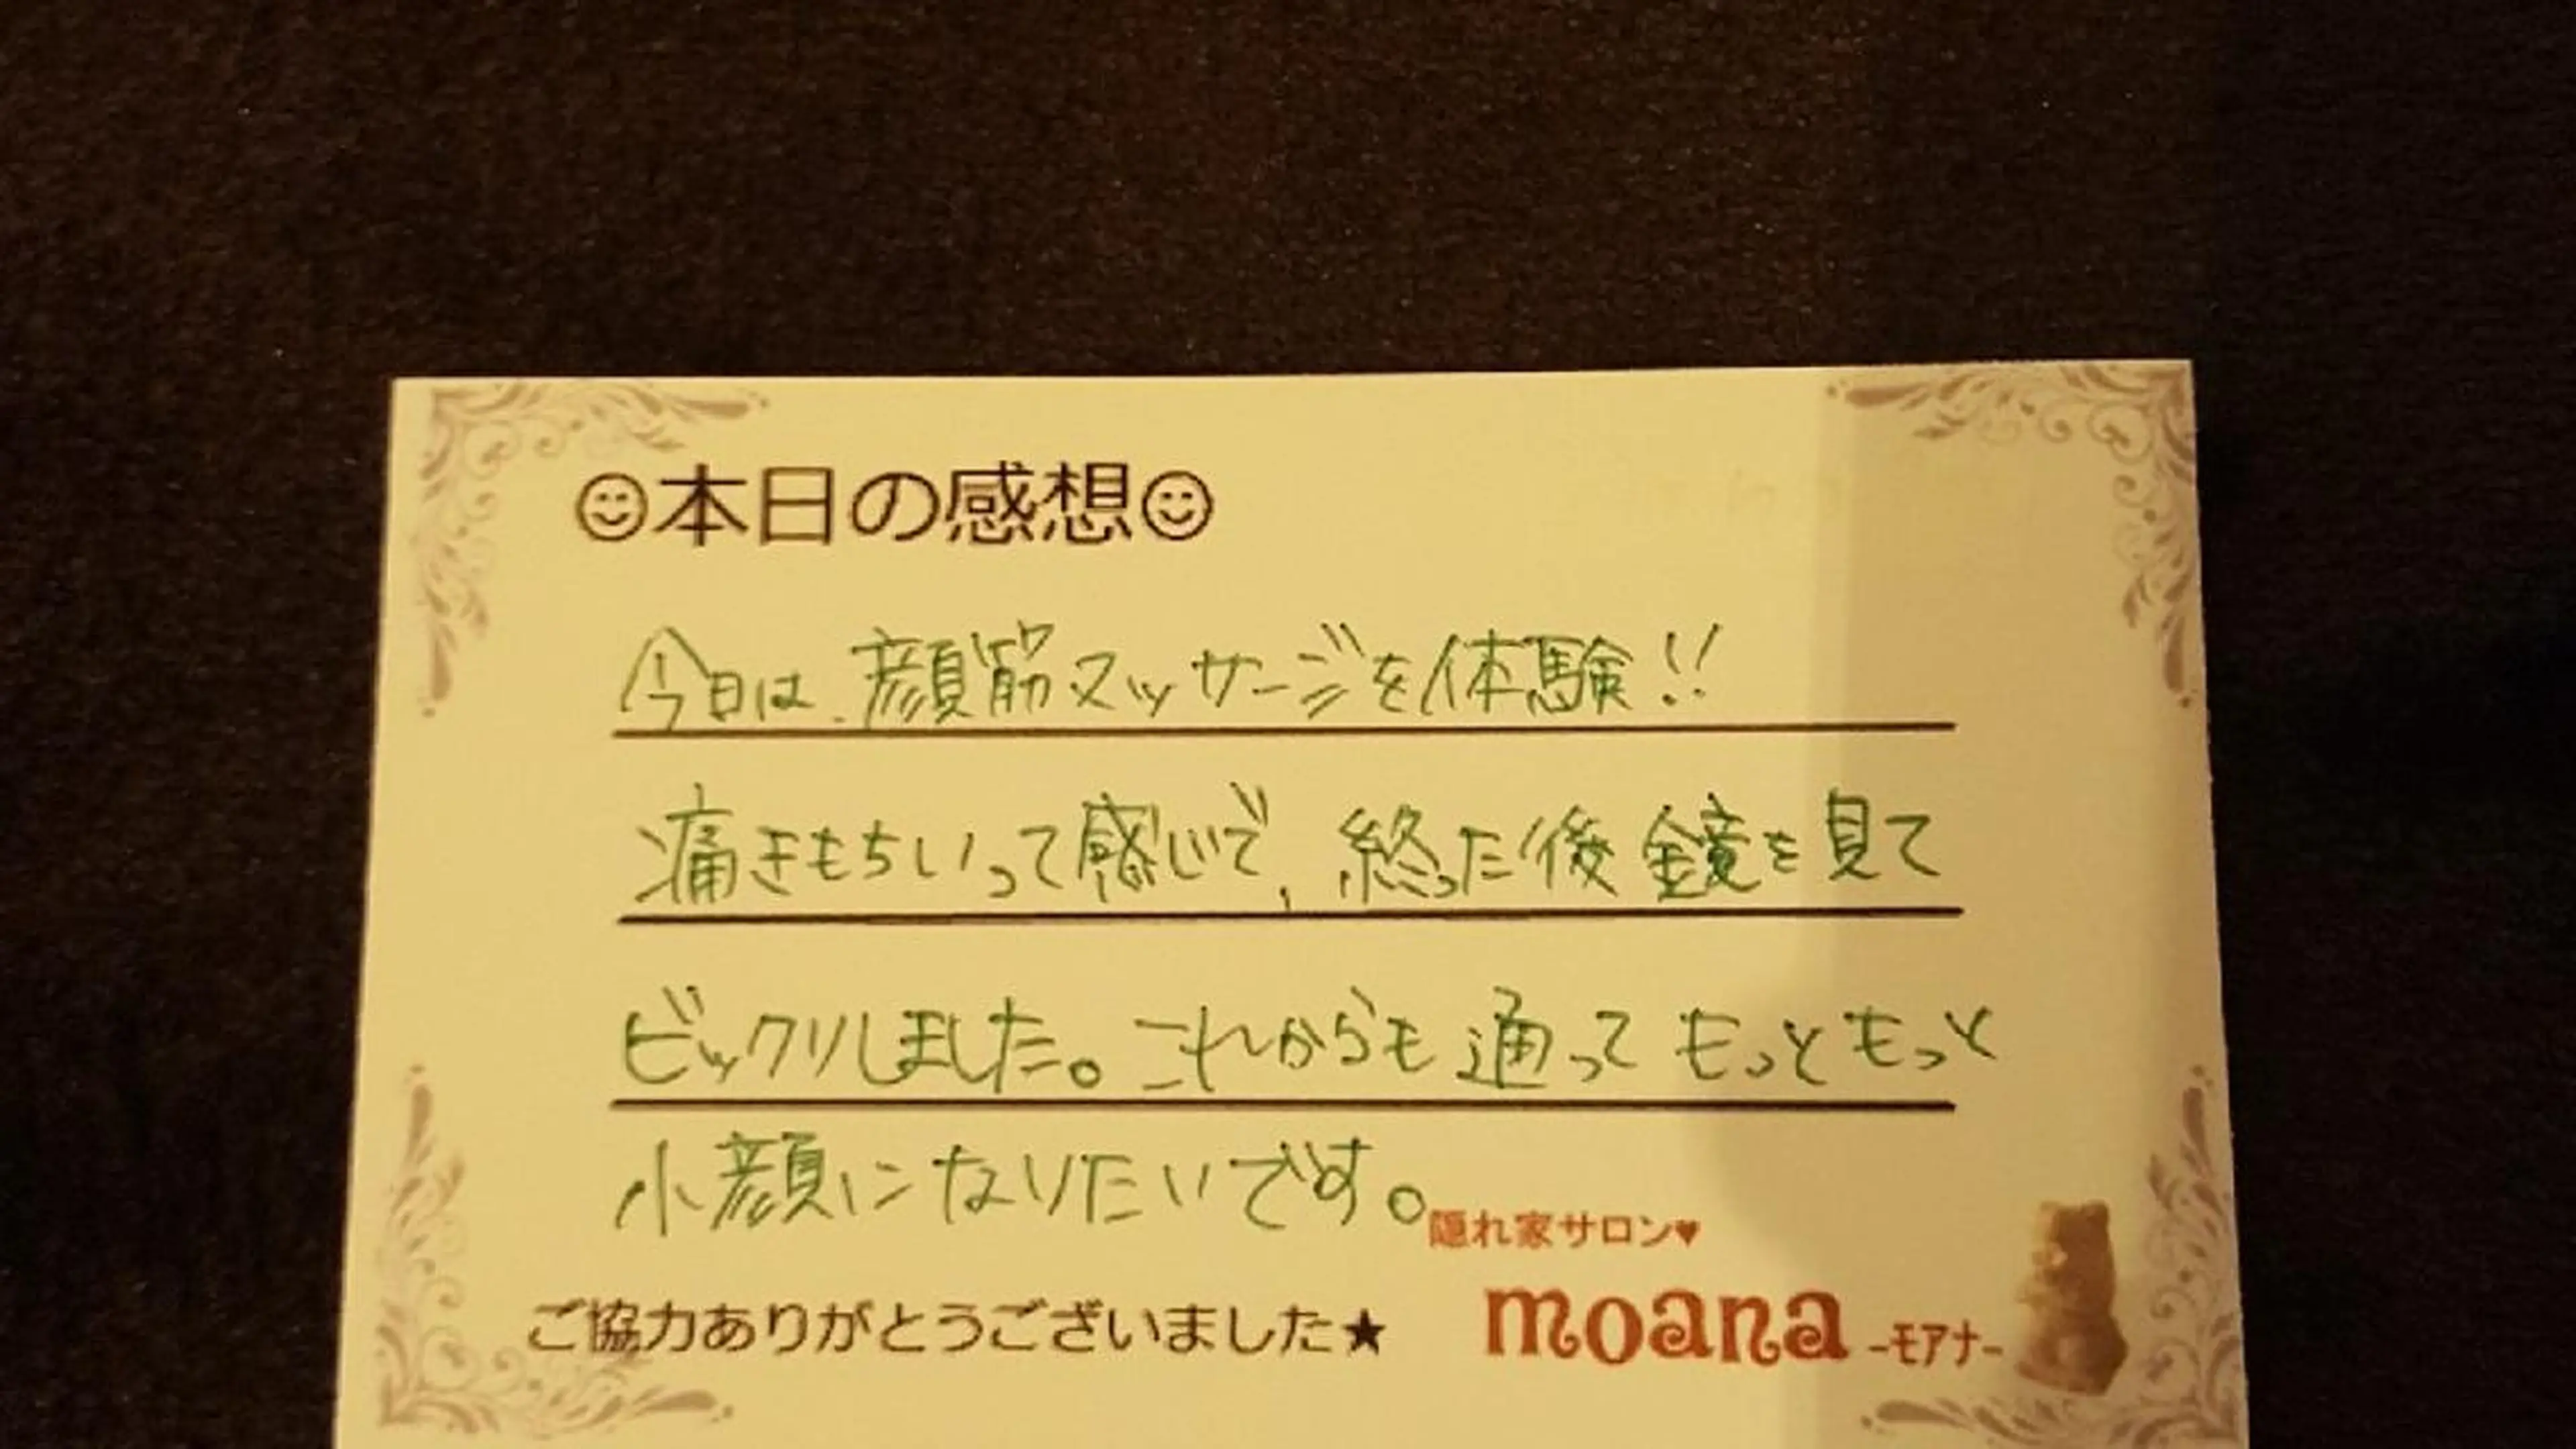 ☺本日の感想☺
今日は、顔筋マッサージを体験!!
痛きもちいって感じで、終った後鏡を見て
ビックリしました。これからも通ってもっともっと
小顔になりたいです。
隠れ家サロン♥
ご協力ありがとうございました★
moana -モアナ-